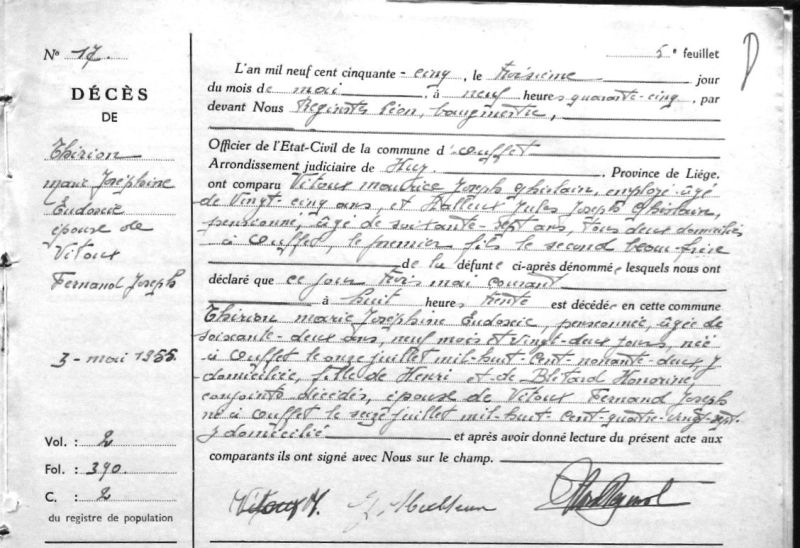 N° 17.
DÉCÈS
DE
Thirion
Marie Joséphine
Eudoxie
épouse de
Vitoux
Fernand Joseph
3 - mai 1955
Vol. : 2
Fol. : 390
C. : 2
du registre de population
5e feuillet
L'an mil neuf cent cinquante - cinq, le troisième jour
du mois de mai, à neuf heures quarante-cinq, par
devant Nous Léon, bourgmestre,
Officier de l'Etat-Civil de la commune d'Ouffet
Arrondissement judiciaire de Huy, Province de Liège.
ont comparu Vitoux Maurice Joseph Ghislain, employé âgé
de vingt-cinq ans, et Halleux Jules Joseph Ghislain,
pensionné, âgé de soixante-sept ans, tous deux domiciliés
à Ouffet, le premier fils le second beau-frère
de la défunte ci-après dénommée lesquels nous ont
déclaré que ce jour trois mai courant
à huit heures trente est décédée en cette commune
Thirion Marie Joséphine Eudoxie, pensionnée, âgée de
soixante-deux ans, neuf mois et vingt-deux jours, née
à Ouffet le onze juillet mil-huit-cent-nonante-deux, y
domiciliée, fille de Henri et de Honorine
conjoints décédés, épouse de Vitoux Fernand Joseph
né à Ouffet le seize juillet mil-huit-cent-quatre-vingt-sept.
y domicilié et après avoir donné lecture du présent acte aux
comparants ils ont signé avec Nous sur le champ.
Vitoux M. J. Halleux